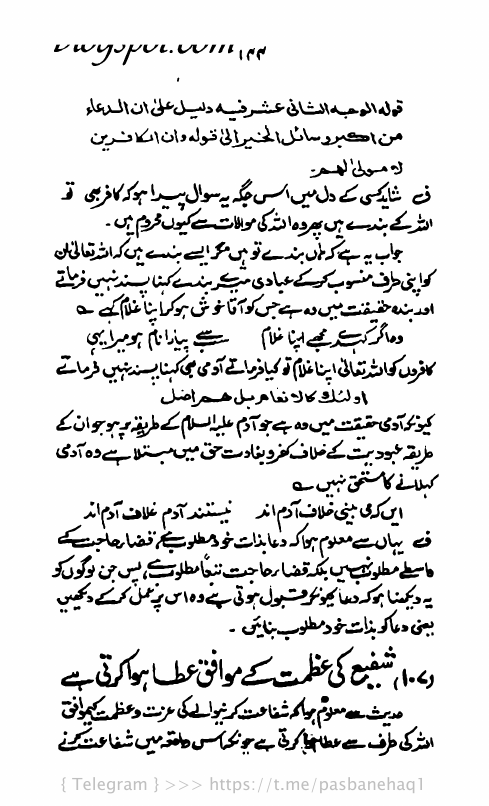 blogspot.com ۱۴۴
قولہ الوجہ الثانی عشر فیہ دلیل علیٰ ان الدعاء
من اکبر وسائل الخیر الیٰ قولہ وان الکافرین
لا مولیٰ لہم۔
ف شاید کسی کے دل میں اس جگہ یہ سوال پیدا ہو کہ کافر بھی تو
اللہ کے بندے ہیں پھر وہ اللہ کی موالات سے کیوں محروم ہیں۔
جواب یہ ہے کہ ہاں بندے تو ہیں مگر ایسے بندے ہیں کہ اللہ تعالیٰ ان
کو اپنی طرف منسوب کر کے عبادی میرے بندے کہنا پسند نہیں فرماتے
اور بندہ حقیقت میں وہ ہے جس کو آقا خوش ہو کر اپنا غلام کہے ؎
وہ اگر کہدیں مجھے اپنا غلام سب سے پیارا نام ہو میرا یہی
کافروں کو اللہ تعالیٰ اپنا غلام تو کیا فرماتے آدمی بھی کہنا پسند نہیں فرماتے
اولئک کالانعام بل ہم اضل
کیونکہ آدمی حقیقت میں وہ ہے جو آدم علیہ السلام کے طریقہ پر ہو جو ان کے
طریقہ عبودیت کے خلاف کفر و بغاوت حق میں مبتلا ہے وہ آدمی
کہلانے کا مستحق نہیں ؎
ایں کہ می بینی خلاف آدم اند نیستند آدم غلاف آدم اند
ف یہاں سے معلوم ہوا کہ دعا بذات خود مطلوب ہے قضا حاجت کے
واسطے مطلوب نہیں بلکہ قضاء حاجت تبعاً مطلوب ہے، پس جن لوگوں کو
یہ دیکھنا ہو کہ دعا کیونکر قبول ہوتی ہے وہ اس پر عمل کر کے دیکھیں
یعنی دعا کو بذات خود مطلوب بنائیں۔
(۱۰۷) شفیع کی عظمت کے موافق عطا ہوا کرتی ہے
حدیث سے معلوم ہوا کہ شفاعت کرنیوالے کی عزت و عظمت کے موافق
اللہ کی طرف سے عطا ہوا کرتی ہے جو نکہ اس واقعہ میں شفاعت کرنے
{ Telegram } >>> https://t.me/pasbanehaq1